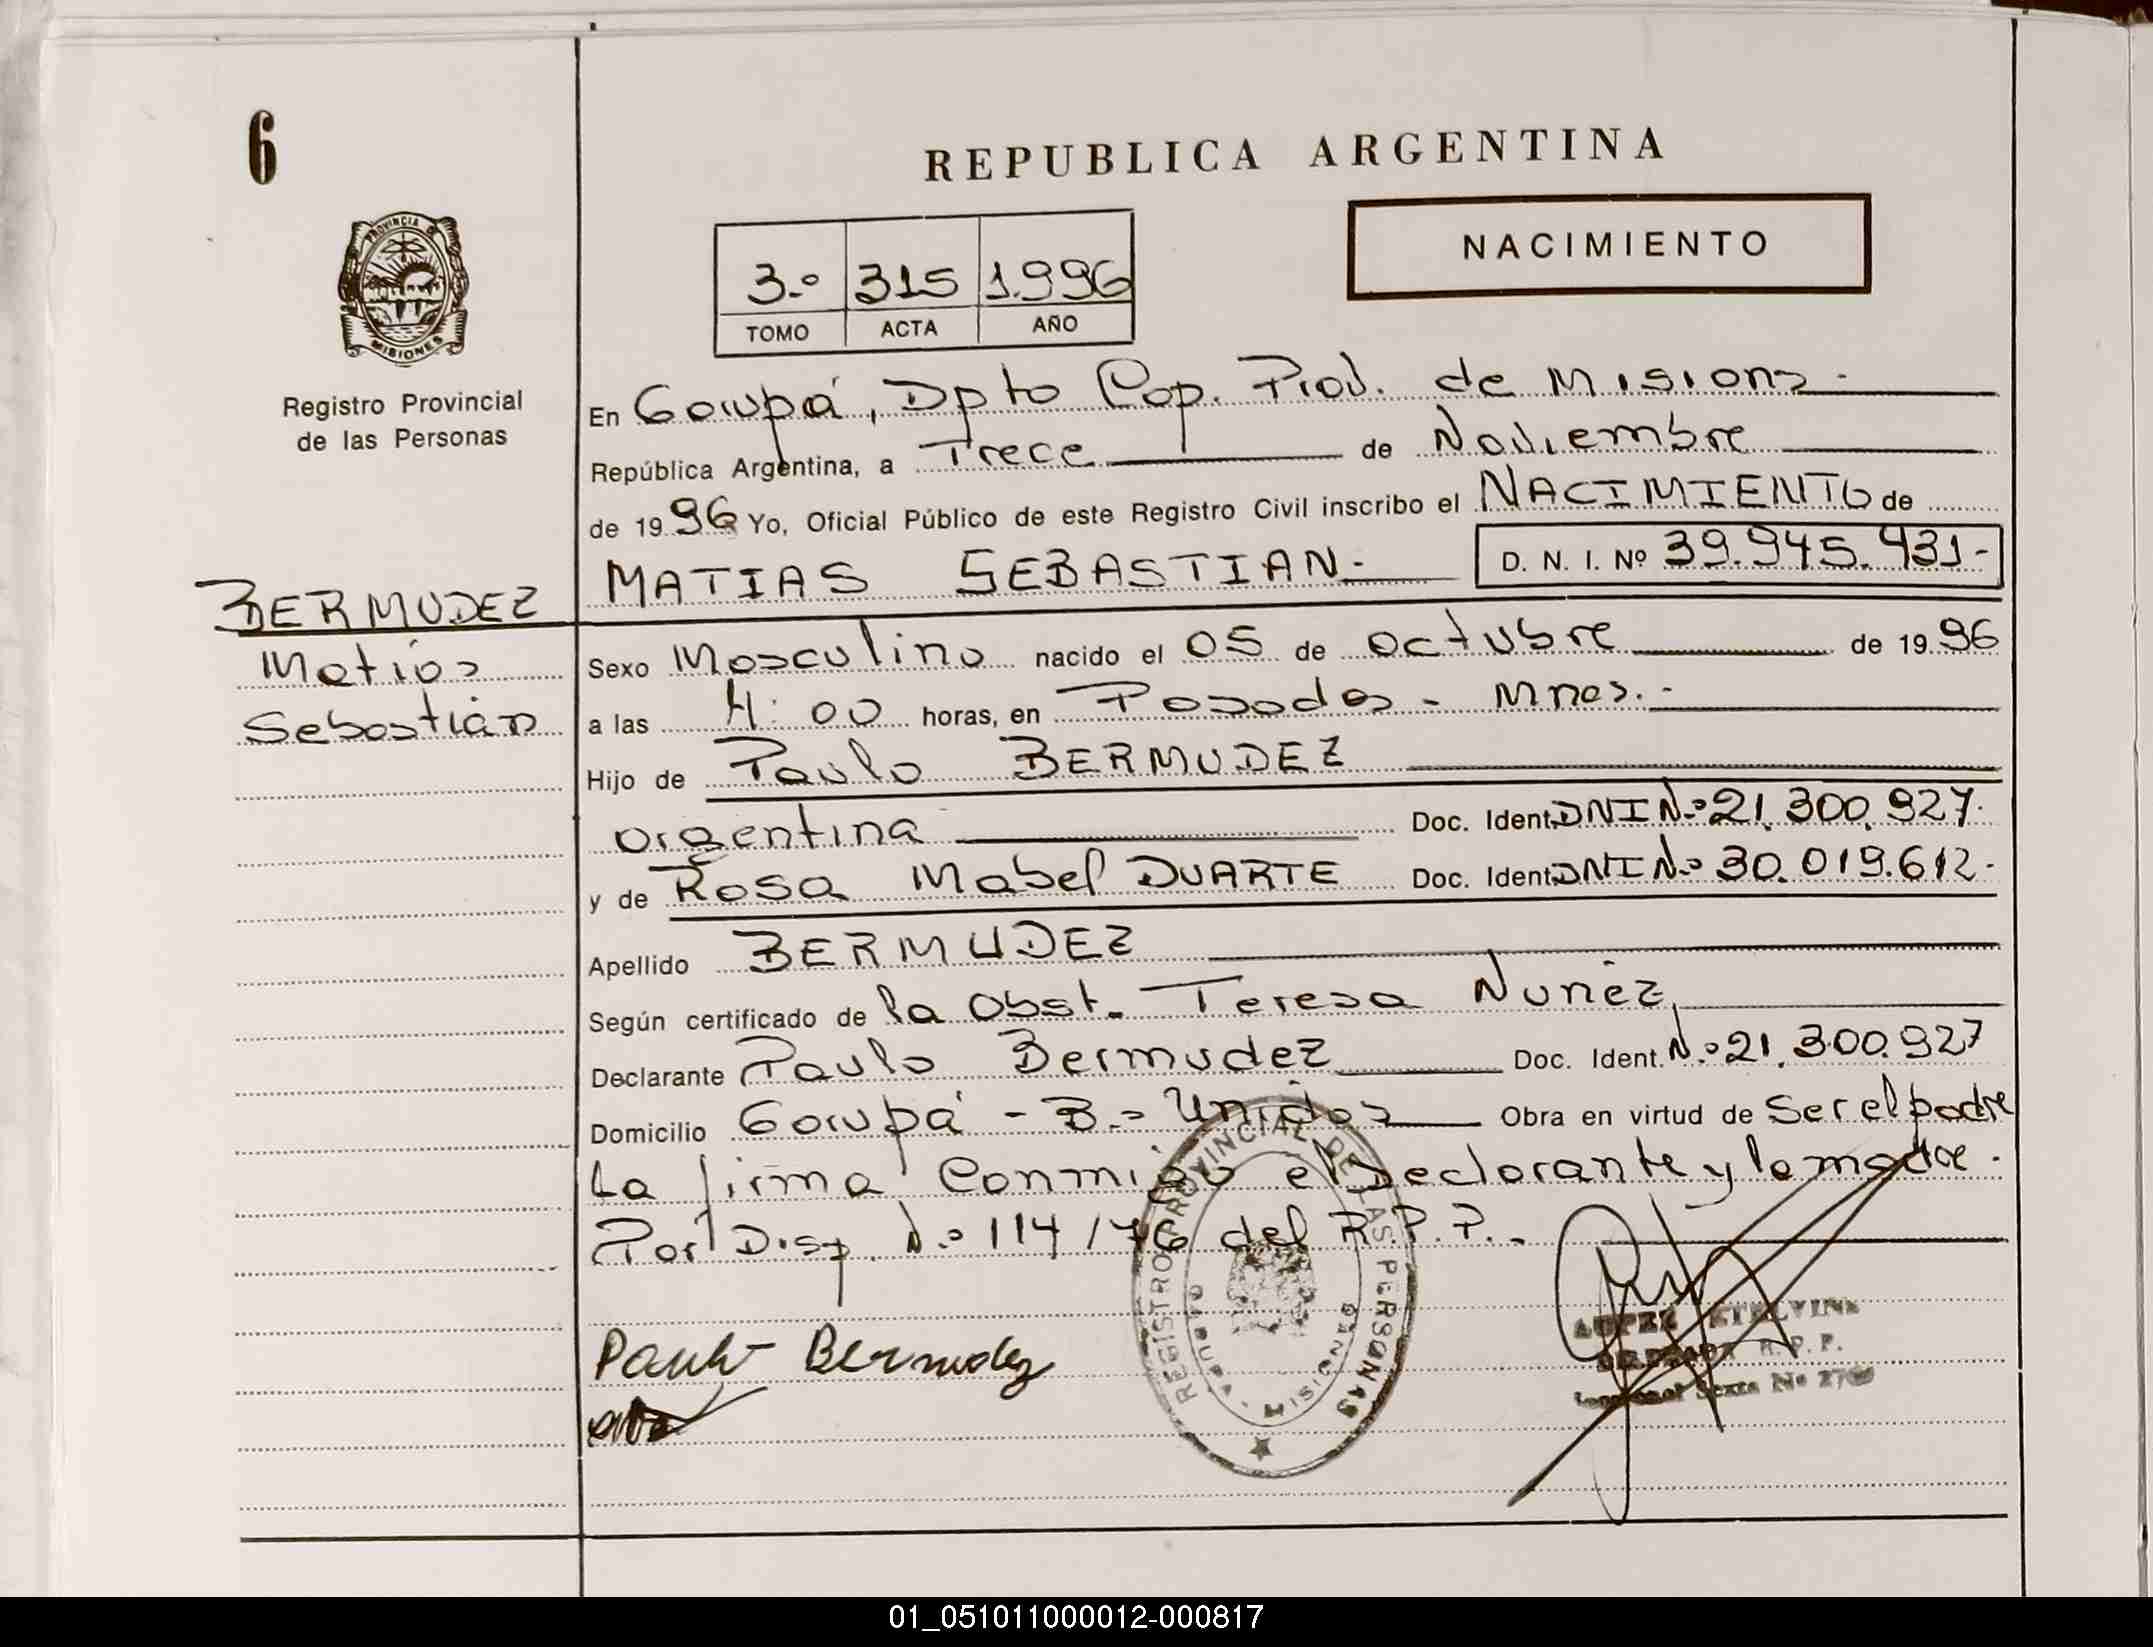 6
REPUBLICA ARGENTINA
NACIMIENTO
3.º 315 1.996
TOMO ACTA AÑO
PROVINCIA DE
MISIONES
Registro Provincial
de las Personas
En Garupá, Dpto Cap. Prov. de Misiones.-
República Argentina, a Trece de Noviembre
de 19 96 Yo, Oficial Público de este Registro Civil inscribo el NACIMIENTO de
MATIAS SEBASTIAN.- D. N. I. Nº 39.945.431-
BERMUDEZ
Matias
Sebastián
Sexo Masculino nacido el 05 de octubre de 19 96
a las 4:00 horas, en Posadas - Mnes.-
Hijo de Paulo BERMUDEZ
argentina Doc. Ident. DNI N.º 21.300.927.
y de Rosa Mabel DUARTE Doc. Ident. DNI N.º 30.019.612-
Apellido BERMUDEZ
Según certificado de la Obst. Teresa Nuñez
Declarante Paulo Bermudez Doc. Ident. N.º 21.300.927
Domicilio Garupá - B.º Unidos Obra en virtud de Ser el padre
La firma Conmigo el Declarante y la madre.
Por Disp. N.º 114/76 del R.P.P..
REGISTRO PROVINCIAL DE LAS PERSONAS
MISIONES
Paulo Bermudez
LOPEZ ETELVINA
R. P. P.
Sexta Nº
01_051011000012-000817